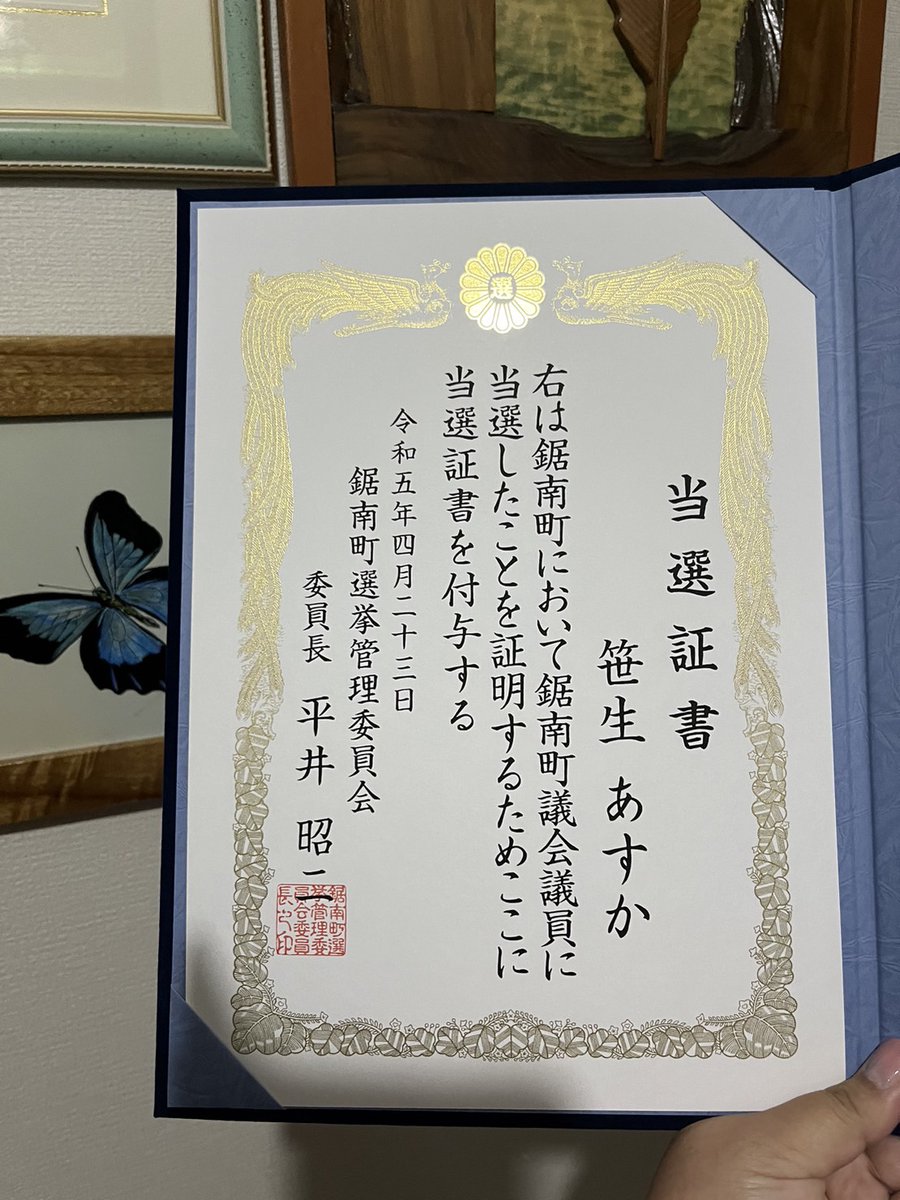 選
当選証書
笹生 あすか
右は鋸南町において鋸南町議会議員に
当選したことを証明するためここに
当選証書を付与する
令和五年四月二十三日
鋸南町選挙管理委員会
委員長 平井 昭二
鋸南町選
挙管理委
員会委員
長之印